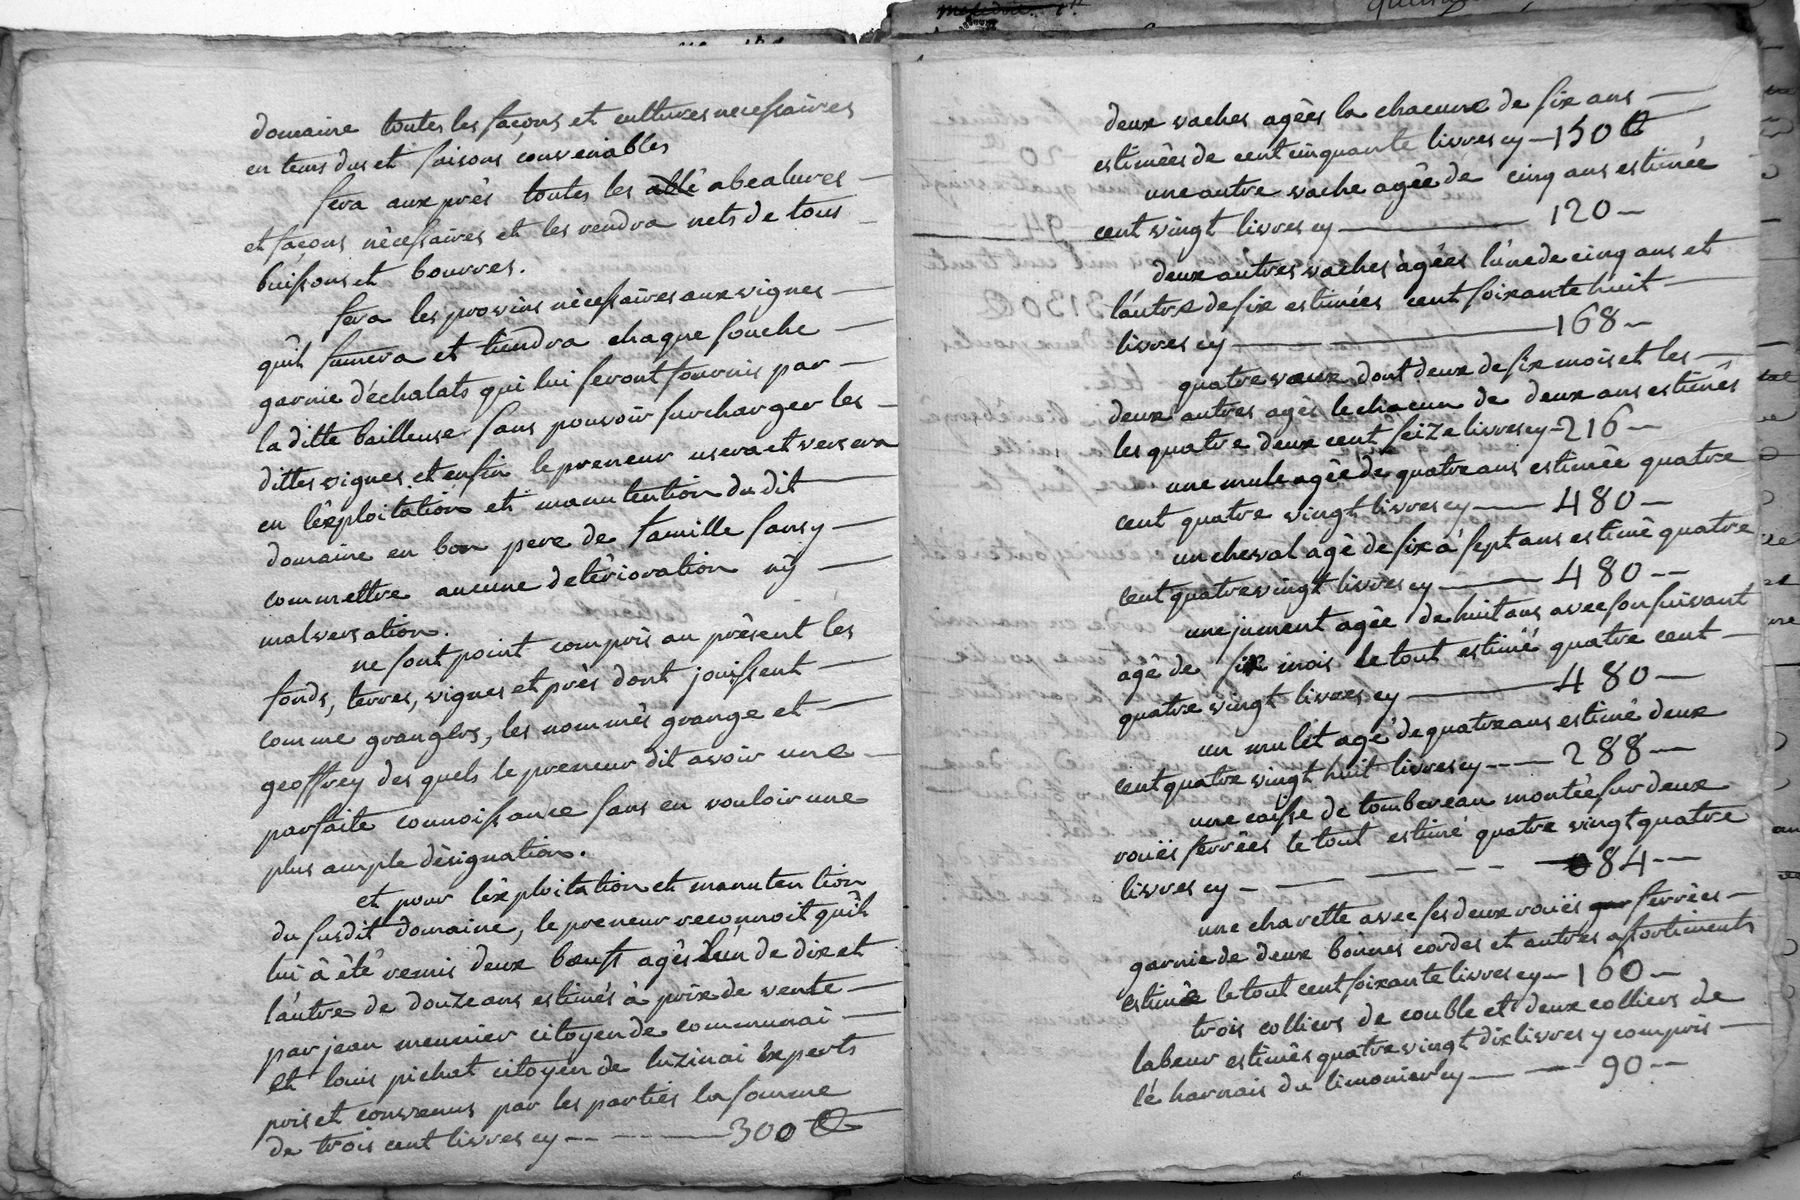 domaine toutes les façons et cultures necessaires
en tems dus et saisons convenables
fera aux près toutes les abealures
et façons nécessaires et les rendra nets de tous
buissons et bourres.
fera les provins nécessaires aux vignes
qu'il fumera et tiendra chaque souche
garnie d'échalats qui lui seront fournis par
la ditte bailleuse sans pouvoir surcharger les
dittes vignes et enfin le preneur usera et versera
en l'éxploitation et manutention du dit
domaine en bon pere de famille sans y
commettre aucune detérioration ny
malversation.
ne sont point compris au présent les
fonds, terres, vignes et près dont jouissent
comme grangers, les nommés grange et
geoffrey des quels le preneur dit avoir une
parfaite connoissance sans en vouloir une
plus ample désignation.
et pour l'éxploitation et manutention
du susdit domaine, le preneur reconnoit qu'il
lui à été remis deux bœufs agés l'un de dix et
l'autre de douze ans estimés à prix de vente
par jean meunier citoyen de communai
et louis pichat citoyen de luzinai experts
pris et convenus par les parties la somme
de trois cent livres cy 300 ₶
deux vaches agées la chacune de six ans
estimées de cent cinquante livres cy 150 ₶
une autre vache agée de cinq ans estimée
cent vingt livres cy 120
deux autres vaches agées l'une de cinq ans et
l'autre de six estimées cent soixante huit
livres cy 168
quatre vœux dont deux de six mois et les
deux autres agés le chacun de deux ans estimés
les quatre deux cent seize livres cy 216
une mule agée de quatre ans estimée quatre
cent quatre vingt livres cy 480
un cheval agé de six à sept ans estimé quatre
cent quatre vingt livres cy 480
une jument agée de huit ans avec son suivant
agé de six mois le tout estimé quatre cent
quatre vingt livres cy 480
un mulet agé de quatre ans estimé deux
cent quatre vingt huit livres cy 288
une caisse de tombereau montée sur deux
rouës ferrées le tout estimé quatre vingt quatre
livres cy 84
une charette avec ses deux rouës ferrées
garnie de deux bonnes cordes et autres assortiments
estimé le tout cent soixante livres cy 160
trois colliers de couble et deux colliers de
labeur estimés quatre vingt dix livres y compris
lé harnais du limonier cy 90